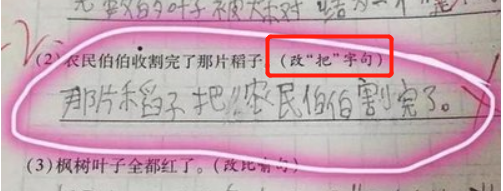 (2)农民伯伯收割完了那片稻子(改“把”字句)
那片稻子把农民伯伯割完了。
(3)枫树叶子全都红了。(改比喻句)